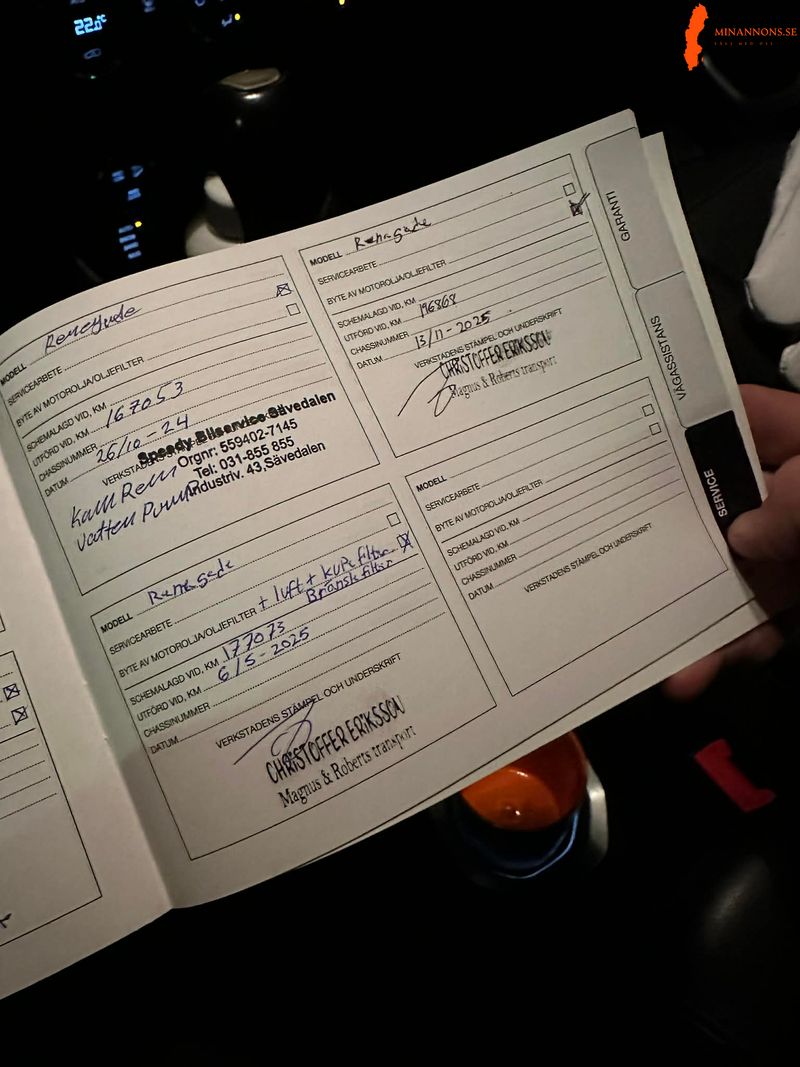 22.0°C
MINANNONS.SE
MODELL Renegade
SERVICEARBETE
BYTE AV MOTOROLJA/OLJEFILTER
SCHEMALAGD VID, KM
UTFÖRD VID, KM 167053
CHASSINUMMER
DATUM 26/10-24
VERKSTADENS
Speedy Bilservice Sävedalen
Orgnr: 559402-7145
Tel: 031-855 855
Industriv. 43, Sävedalen
Kam Rem
Vatten Pump
MODELL Renegade
SERVICEARBETE
BYTE AV MOTOROLJA/OLJEFILTER + luft + kupefilter
Bränslefilter
SCHEMALAGD VID, KM
UTFÖRD VID, KM 177073
CHASSINUMMER
DATUM 6/5-2025
VERKSTADENS STÄMPEL OCH UNDERSKRIFT
CHRISTOFFER ERIKSSON
Magnus & Roberts transport
MODELL Renegade
SERVICEARBETE
BYTE AV MOTOROLJA/OLJEFILTER
SCHEMALAGD VID, KM
UTFÖRD VID, KM 196868
CHASSINUMMER
DATUM 13/11-2025
VERKSTADENS STÄMPEL OCH UNDERSKRIFT
CHRISTOFFER ERIKSSON
Magnus & Roberts transport
MODELL
SERVICEARBETE
BYTE AV MOTOROLJA/OLJEFILTER
SCHEMALAGD VID, KM
UTFÖRD VID, KM
CHASSINUMMER
DATUM
VERKSTADENS STÄMPEL OCH UNDERSKRIFT
GARANTI
VÄGASSISTANS
SERVICE